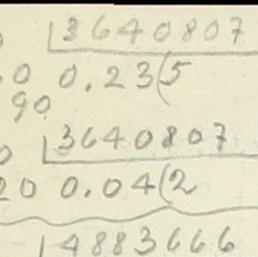 3640807
0 0.23(5
90
3640807
20 0.04(2
4883666